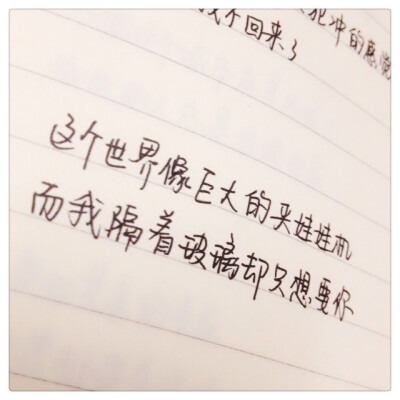 犯冲的感觉
找不回来了
这个世界像巨大的夹娃娃机
而我隔着玻璃却只想要你